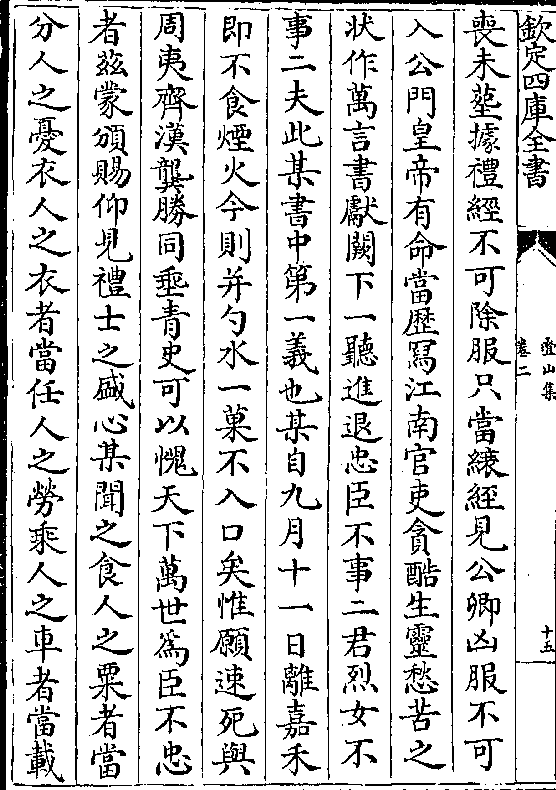 欽定四庫全書
疊山集
卷二
十五
喪未塟據禮經不可除服只當縗絰見公卿凶服不可
入公門皇帝有命當歴冩江南官吏貪酷生靈愁苦之
狀作萬言書獻闕下一聽進退忠臣不事二君烈女不
事二夫此某書中第一義也某自九月十一日離嘉禾
即不食煙火今則并勺水一菓不入口矣惟願速死與
周夷齊漢龔勝同垂青史可以愧天下萬世為臣不忠
者兹蒙頒賜仰見禮士之盛心某聞之食人之粟者當
分人之憂衣人之衣者當任人之勞乘人之車者當載